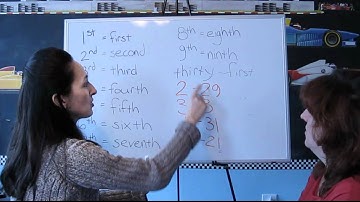 1st = first
2nd = second
3rd = third
= fourth
= fifth
th = sixth
= seventh
8th = eighth
9th = ninth
thirty - first
2 29
3
31
21